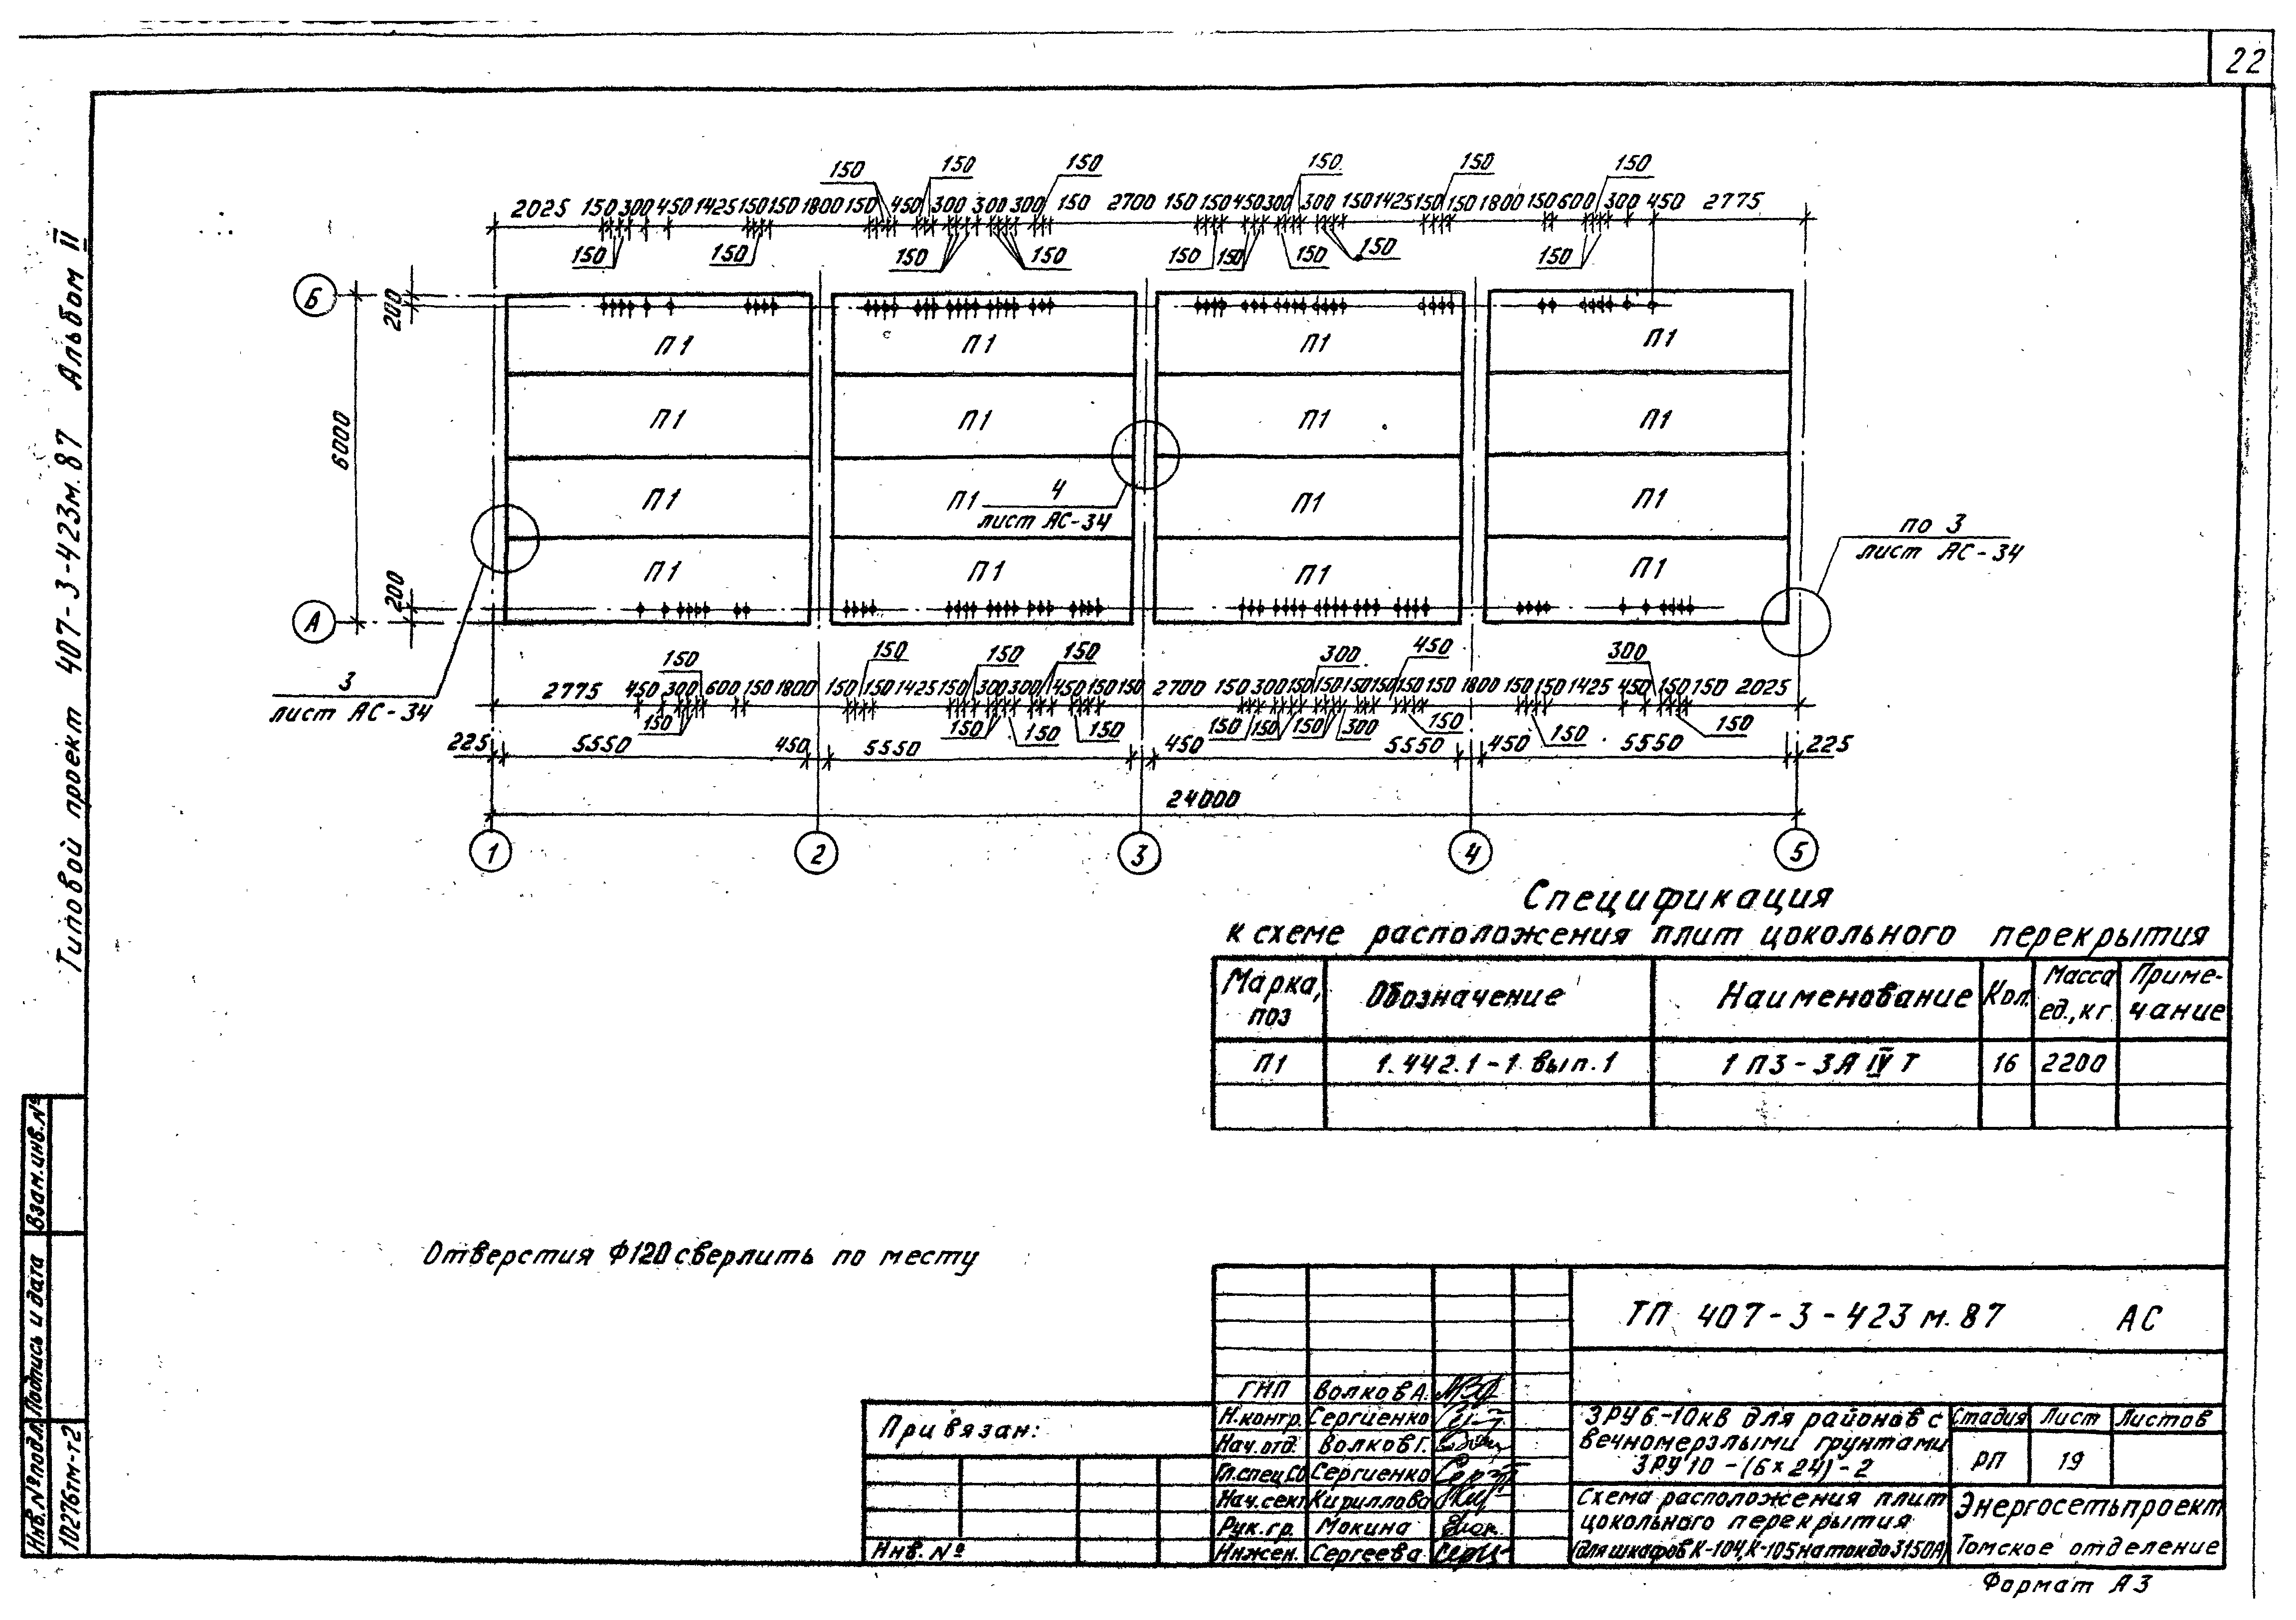 22
Типовой проект 407-3-423м.87 Альбом II
150 150 150 150 150 150
2025 150 300 450 1425 150 150 150 1800 150 450 300 300 300 150 2700 150 150 450 300 300 150 1425 150 150 1800 150 600 300 450 2775
150 150 150 150 150 150 150 150 150
Б
200
6000
П1 П1 П1 П1
П1 П1 П1 П1
П1 П1 П1 П1
4
лист АС-34
по 3
лист АС-34
П1 П1 П1 П1
200
А
3
лист АС-34
150 150 150 150 300 450 300
2775 450 300 600 150 1800 150 150 1425 150 300 300 450 150 150 2700 150 300 150 150 150 150 150 150 1800 150 150 1425 450 150 150 2025
150 150 150 150 150 150 150 300 150 150 150
225 5550 450 5550 450 5550 450 5550 225
24000
1 2 3 4 5
Спецификация
к схеме расположения плит цокольного перекрытия
Марка, поз Обозначение Наименование Кол. Масса ед., кг Приме-чание
П1 1.442.1-1 вып.1 1 П3-3А IV Т 16 2200
Отверстия Ф120 сверлить по месту
ТП 407-3-423 м.87 АС
ГИП Волков А.
Н.контр. Сергиенко
Нач.отд. Волков Г.
Гл.спец СО Сергиенко
Нач.сект Кириллова
Рук.гр. Мокина
Инжен. Сергеева
ЗРУ 6-10кВ для районов с
вечномерзлыми грунтами
ЗРУ 10-(6×24)-2
Стадия Лист Листов
РП 19
Схема расположения плит
цокольного перекрытия
(для шкафов К-104, К-105 на ток до 3150А)
Энергосетьпроект
Томское отделение
Привязан:
Инв. №
Формат А3
Взам.инв.№
Подпись и дата
Инв.№подл.
10276тм-т2